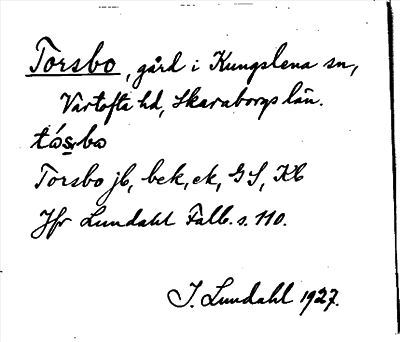 Torsbo, gård i Kungslena sn,
Vartofta hd, Skaraborgs län.
Torsbo jb, bek, ek, GS, Kb
Jfr Lundahl Falb. s. 110.
I. Lundahl 1927.